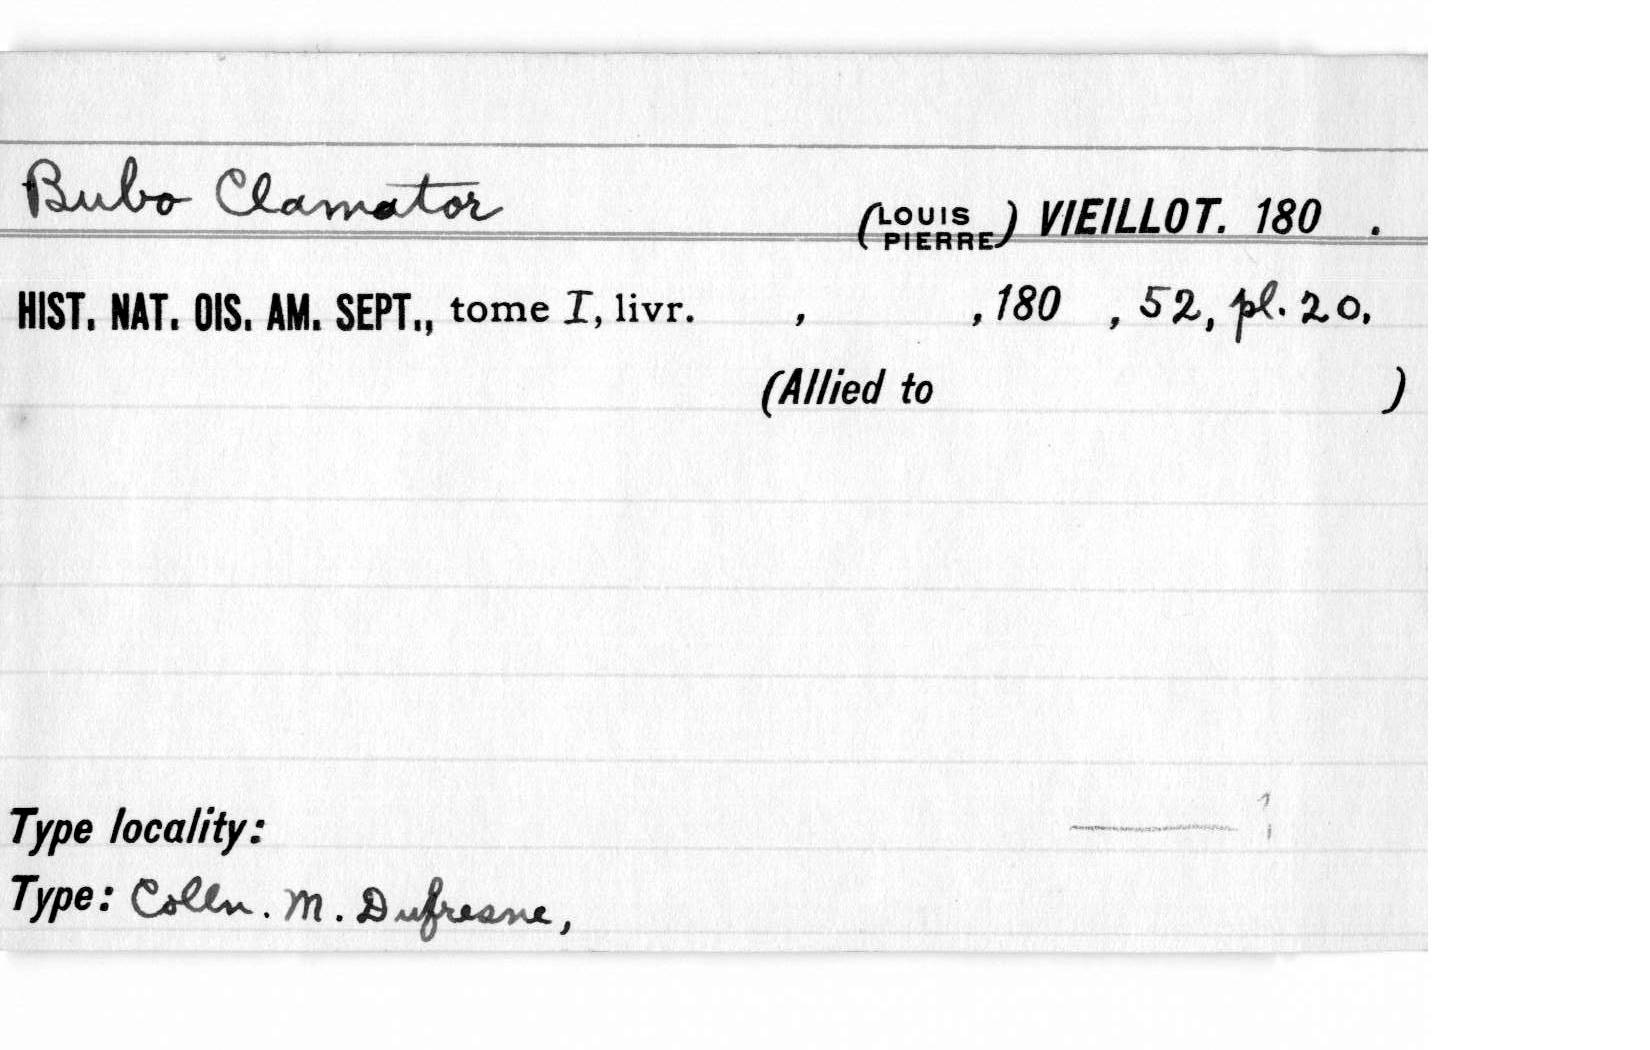 Bubo Clamator (LOUIS PIERRE) VIEILLOT. 180 .
HIST. NAT. OIS. AM. SEPT., tome I, livr. , , 180 , 52, pl. 20.
(Allied to )
Type locality: —— ?
Type: Colln. M. Dufresne,